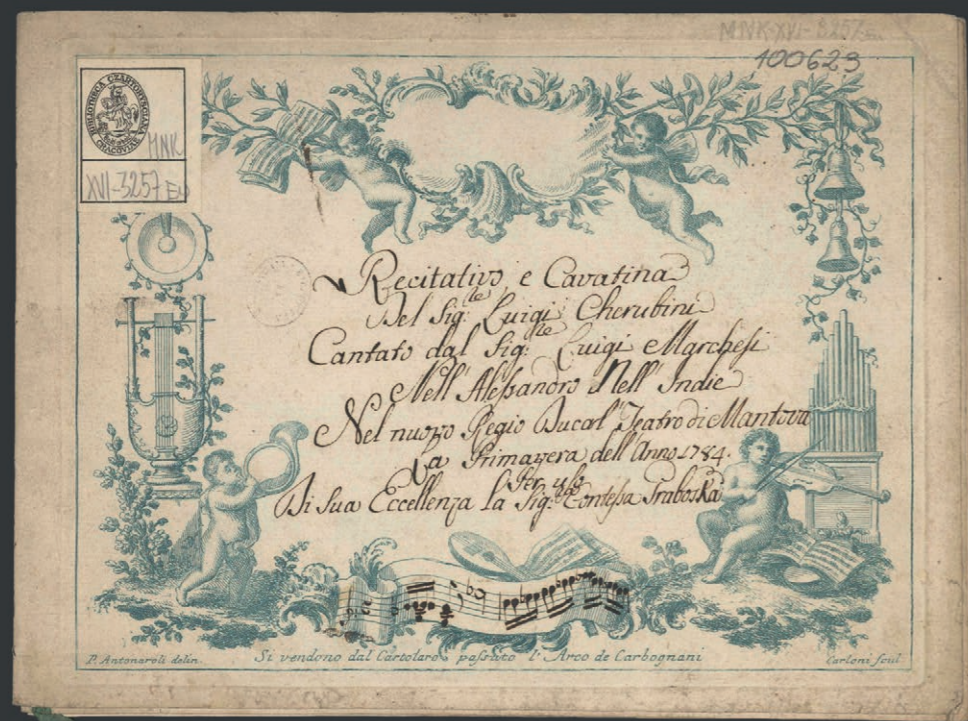 MNK-XVI-3257-E
100623
BIBLIOTHECA CZARTORYSCIANA CRACOVIAE
MNK
XVI-3257 Ew
Recitativo e Cavatina
Del Sig:re Luigi Cherubini
Cantato dal Sig:re Luigi Marchesi
Nell' Alessandro Nell' Indie
Nel nuovo Regio Ducal Teatro di Mantova
La Primavera dell' Anno 1784.
Per uso
Di Sua Eccellenza La Sig:ra Contessa Graboska
P. Antonaroli delin.
Si vendono dal Cartolaro passato l' Arco de Carbognani
Carloni scul